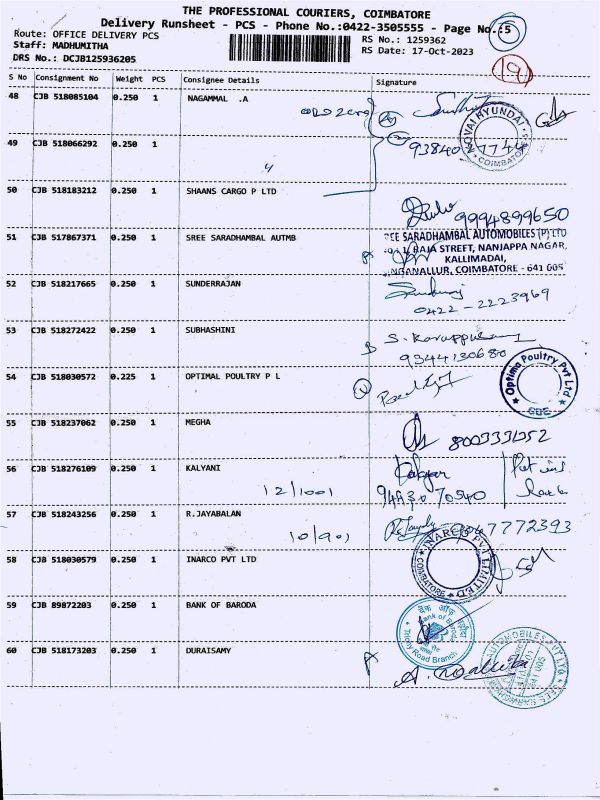 THE PROFESSIONAL COURIERS, COIMBATORE
Delivery Runsheet - PCS - Phone No.:0422-3505555 - Page No.:5
Route: OFFICE DELIVERY PCS
RS No.: 1259362
Staff: MADHUMITHA
RS Date: 17-Oct-2023
DRS No.: DCJB125936205
19
S No Consignment No Weight PCS Consignee Details Signature
48 CJB 518085104 0.250 1 NAGAMMAL .A
KOVAI HYUNDAI
COIMBATORE
49 CJB 518066292 0.250 1
93840 7744
50 CJB 518183212 0.250 1 SHAANS CARGO P LTD
9994899650
51 CJB 517867371 0.250 1 SREE SARADHAMBAL AUTMB
EE SARADHAMBAL AUTOMOBILES (P) LTD
RAJA STREET, NANJAPPA NAGAR,
KALLIMADAI,
INGANALLUR, COIMBATORE - 641 005
52 CJB 518217665 0.250 1 SUNDERRAJAN
0422-2223969
53 CJB 518272422 0.250 1 SUBHASHINI
9344130680
54 CJB 518030572 0.225 1 OPTIMAL POULTRY P L
Optima Poultry Pvt Ltd
CBE
55 CJB 518237062 0.250 1 MEGHA
56 CJB 518276109 0.250 1 KALYANI
12/1001
94430 70540
57 CJB 518243256 0.250 1 R.JAYABALAN
10/901
7772393
58 CJB 518030579 0.250 1 INARCO PVT LTD
INARCO PVT LIMITED
COIMBATORE
59 CJB 89872203 0.250 1 BANK OF BARODA
बैंक ऑफ़ बड़ौदा
Bank of Baroda
Trichy Road Branch
60 CJB 518173203 0.250 1 DURAISAMY
AUTOMOBILES PVT LTD